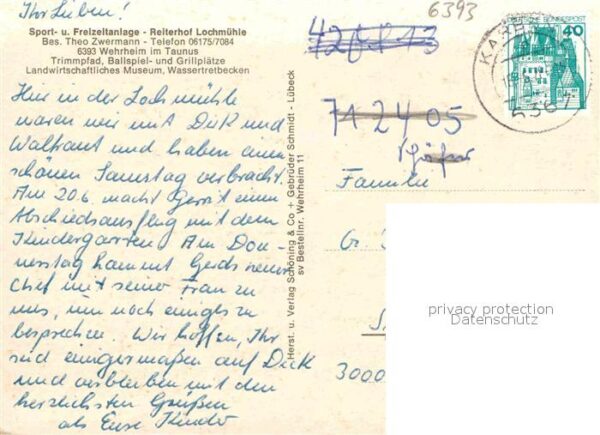 Ihr Lieben!
Sport- u. Freizeitanlage - Reiterhof Lochmühle
Bes. Theo Zwermann - Telefon 06175/7084
6393 Wehrheim im Taunus
Trimmpfad, Ballspiel- und Grillplätze
Landwirtschaftliches Museum, Wassertretbecken
Hier in der Lochmühle
waren wir mit Dirk und
Waltraut und haben einen
schönen Samstag verbracht.
Am 20.6. macht Gerrit einen
Abschiedsausflug mit dem
Kindergarten. Am Don-
nerstag kommt Gerds neuer
Chef mit seiner Frau zu
uns, um noch einiges zu
besprechen. Wir hoffen, Ihr
seid einigermaßen auf Deck
und verbleiben mit den
herzlichsten Grüßen
als Eure Kinder
Herst. u. Verlag Schöning & Co + Gebrüder Schmidt - Lübeck
sv Bestellnr. Wehrheim 11
6393
DEUTSCHE BUNDESPOST
40
KARBEN
6367
71 24 05
Schäfer
Familie
3000
privacy protection
Datenschutz